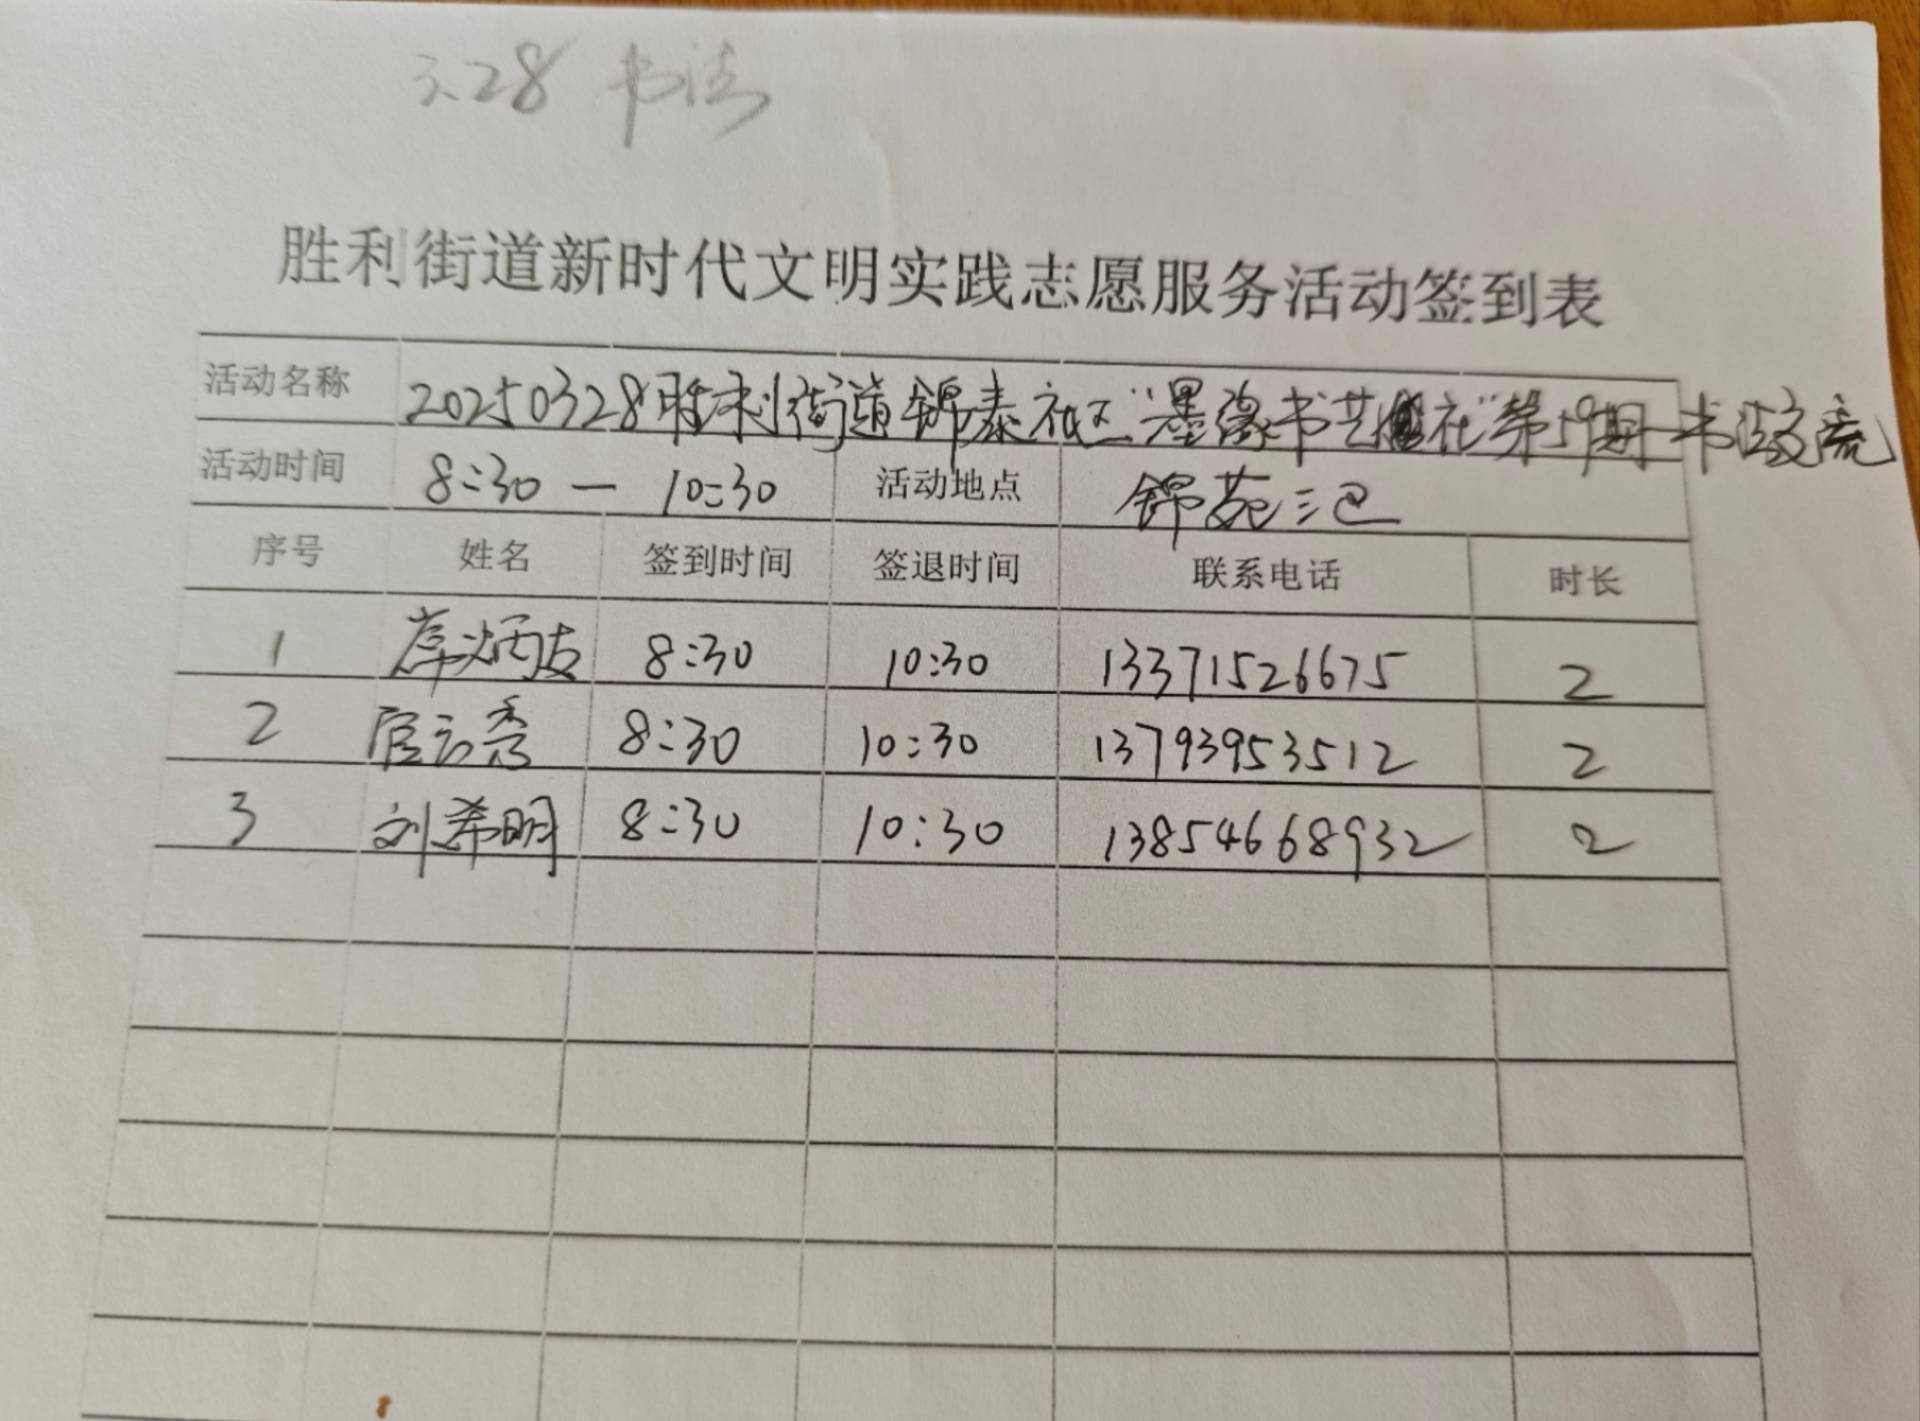 3.28 书法
胜利街道新时代文明实践志愿服务活动签到表
活动名称 20250328胜利街道锦泰社区"墨缘书艺社"第59期—书法交流
活动时间 8:30 — 10:30 活动地点 锦苑三区
序号 姓名 签到时间 签退时间 联系电话 时长
1 8:30 10:30 13371526675 2
2 官云秀 8:30 10:30 13793953512 2
3 刘希明 8:30 10:30 13854668932 2